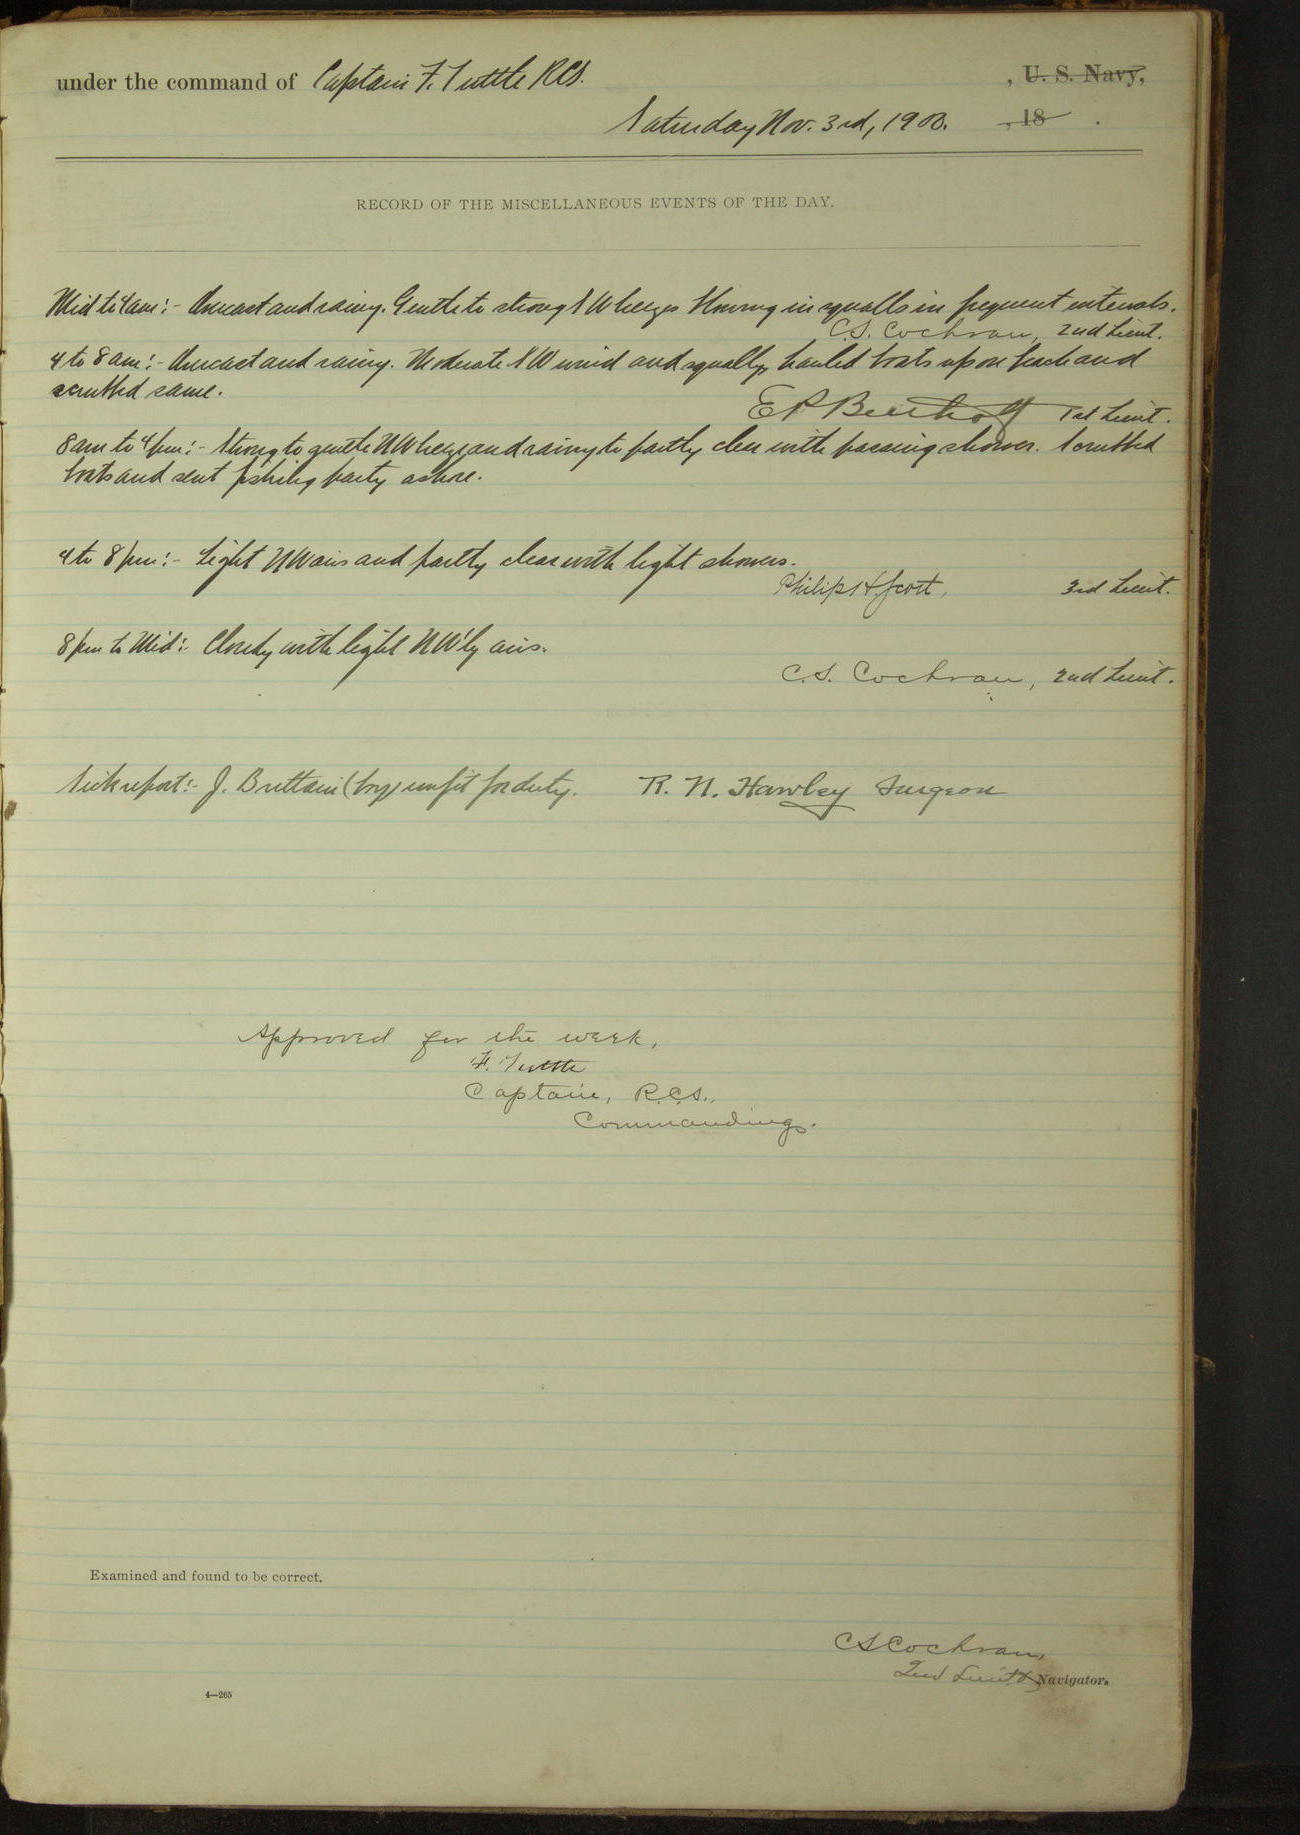 under the command of Captain F. Tuttle RCS. , U. S. Navy,
Saturday Nov. 3rd, 1900. , 18 .
RECORD OF THE MISCELLANEOUS EVENTS OF THE DAY.
Mid to 4am:- Overcast and rainy. Gentle to strong breezes blowing in squalls in frequent intervals.
C.S. Cochran, 2nd Lieut.
4 to 8am:- Overcast and rainy. Moderate wind and squally, hauled boats up on beach and
scrubbed same.
E P Bertholf 1st Lieut.
8am to 4pm:- Strong to gentle NW breeze and rainy to partly clear with passing shower. Scrubbed
boats and sent fishing party ashore.
4 to 8pm:- Light NW airs and partly clear with light showers.
Philip H. Scott, 3rd Lieut.
8pm to Mid:- Cloudy with light NW'ly airs.
C.S. Cochran, 2nd Lieut.
Sick report:- J. Brittain (boy) unfit for duty. R. N. Hawley Surgeon
Approved for the week,
F. Tuttle
Captain, R.C.S.,
Commanding.
Examined and found to be correct.
C S Cochran,
2nd Lieut & Navigator.
4—265